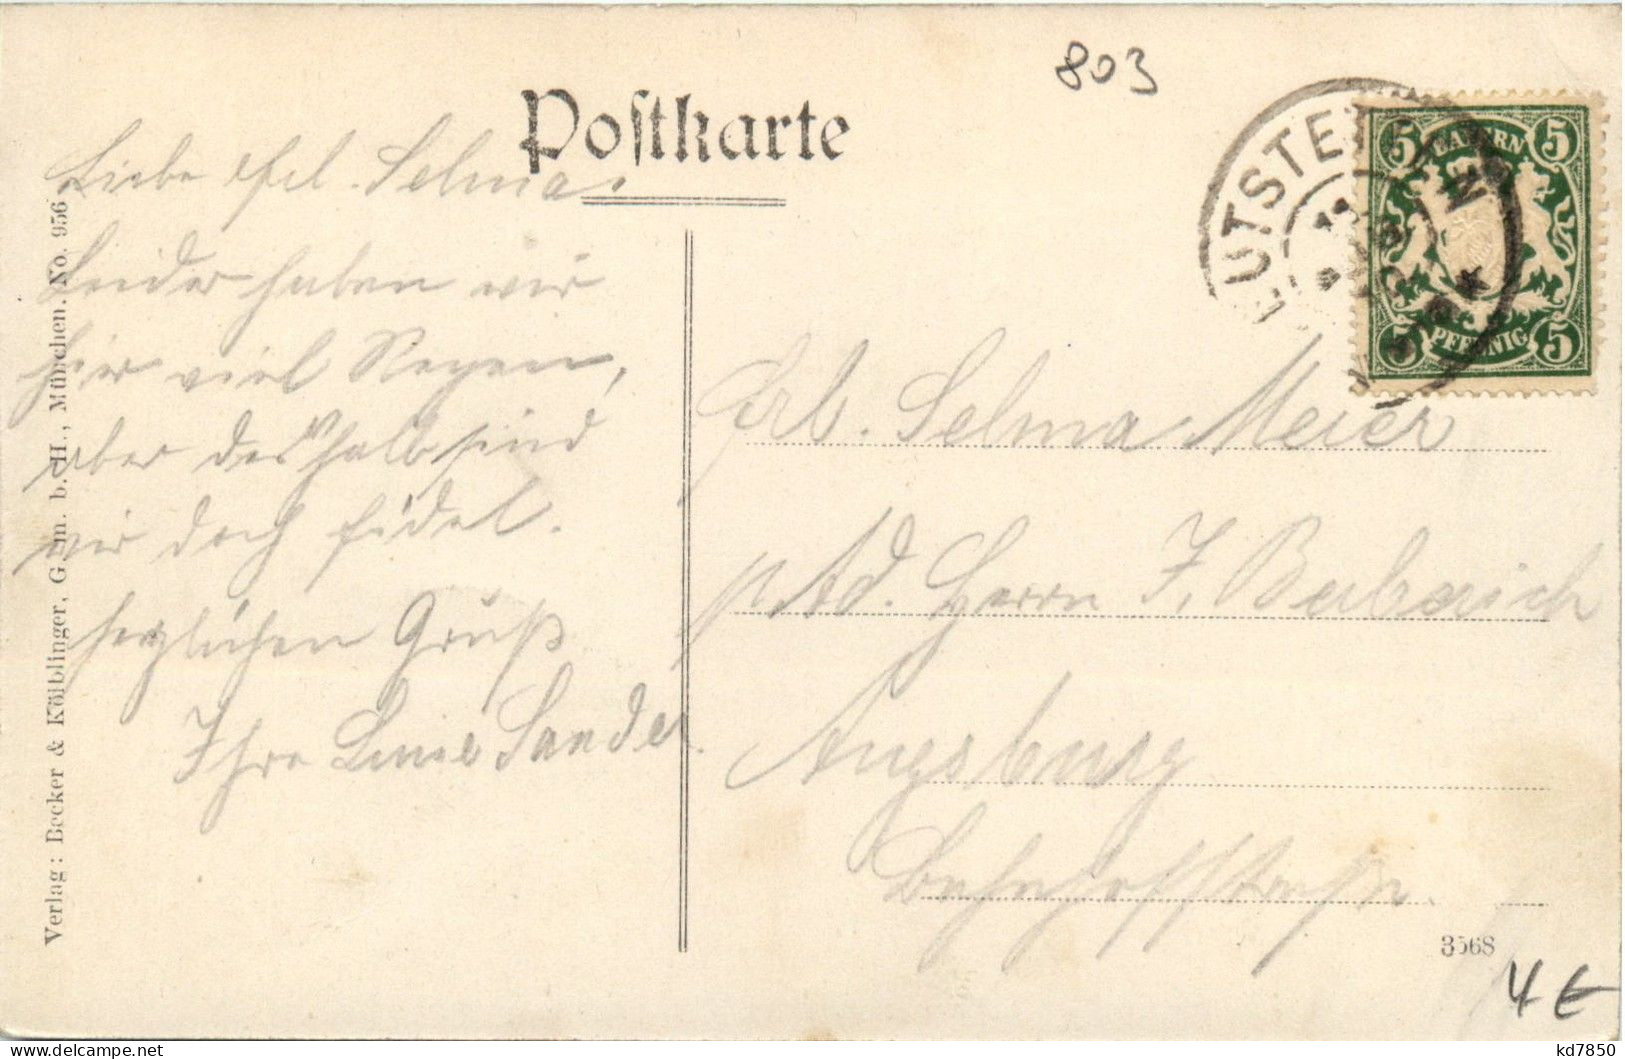 803
Postkarte
BAYERN
5 5
PFENNIG
5 5
Liebe Frl. Selma.
Leider haben wir
hier viel Regen,
aber deshalb sind
wir doch fidel.
herzlichen Gruß
Ihre Sander
Frl. Selma Meier
Ad. Herrn F. Berberich
Augsburg
Bahnhofstraße.
Verlag: Becker & Kölblinger, G. m. b. H., München. No. 956
3568
4 €
kd7850